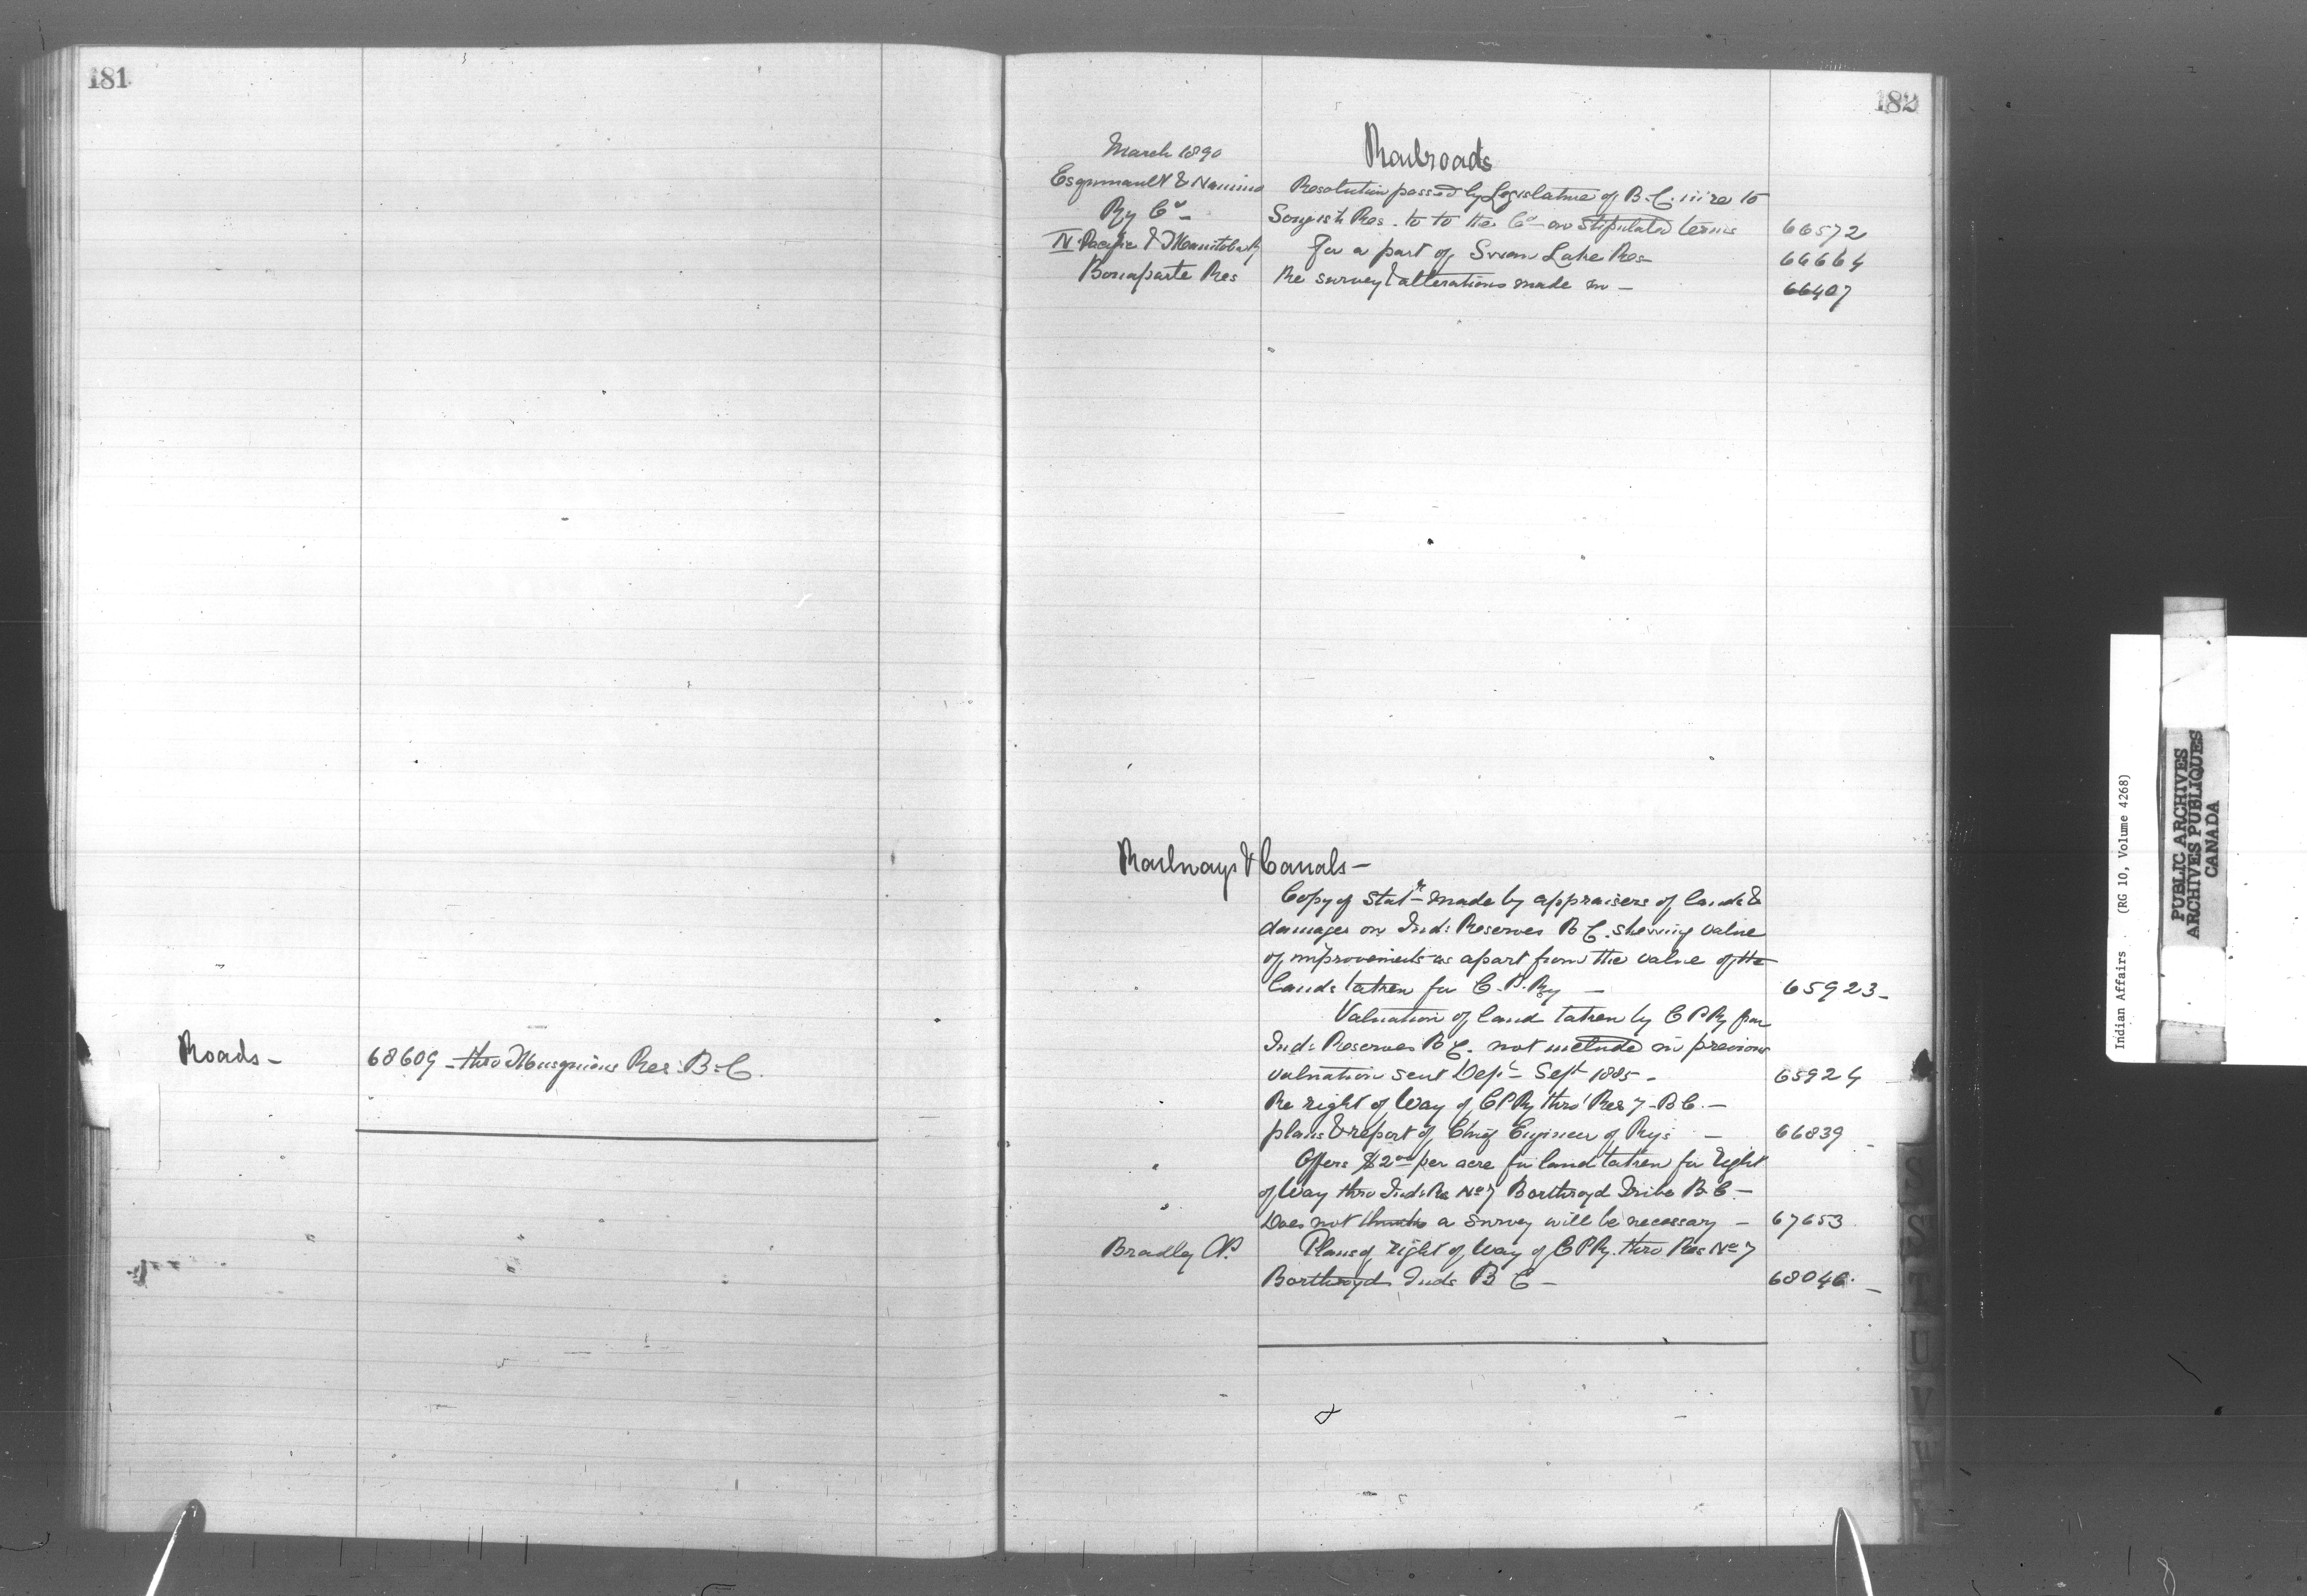 181
Roads – 68609 – thro Musquiam Res: B.C.
182
March 1890 Railroads
Esquimault & Naniмо Resolution passed by Legislature of B.C. in re to
Ry Co – Songish Res. to to the Co – on stipulated terms 66572
N. Pacific & Manitoba Ry for a part of Swan Lake Res – 66664
Bonaparte Res Re survey & alterations made in – 66407
Railways & Canals –
Copy of Stat – made by appraisers of lands &
damages on Inds Reserves B C. shewing value
of improvements as apart from the value of the
lands taken for C.P. Ry – 65923 –
Valuation of land taken by C P Ry from
Inds Reserves B C. not include in previous
valuation sent Dept – Sept 1885 – 65924
Re right of Way of C P Ry thro' Res 7 – B C. –
plans & report of Chief Engineer of Rys – 66839 –
Offers $2 00 per acre for land taken for right
of Way thro Inds Re No 7 Boothroyd Tribe B.C –
Does not think a survey will be necessary – 67653
Bradley A.P. Plans of right of Way of C P Ry. thro Res No 7
Boothroyd Inds B C – 68046. –
S
ST
T
U
V
W
Indian Affairs (RG 10, Volume 4268)
PUBLIC ARCHIVES
ARCHIVES PUBLIQUES
CANADA